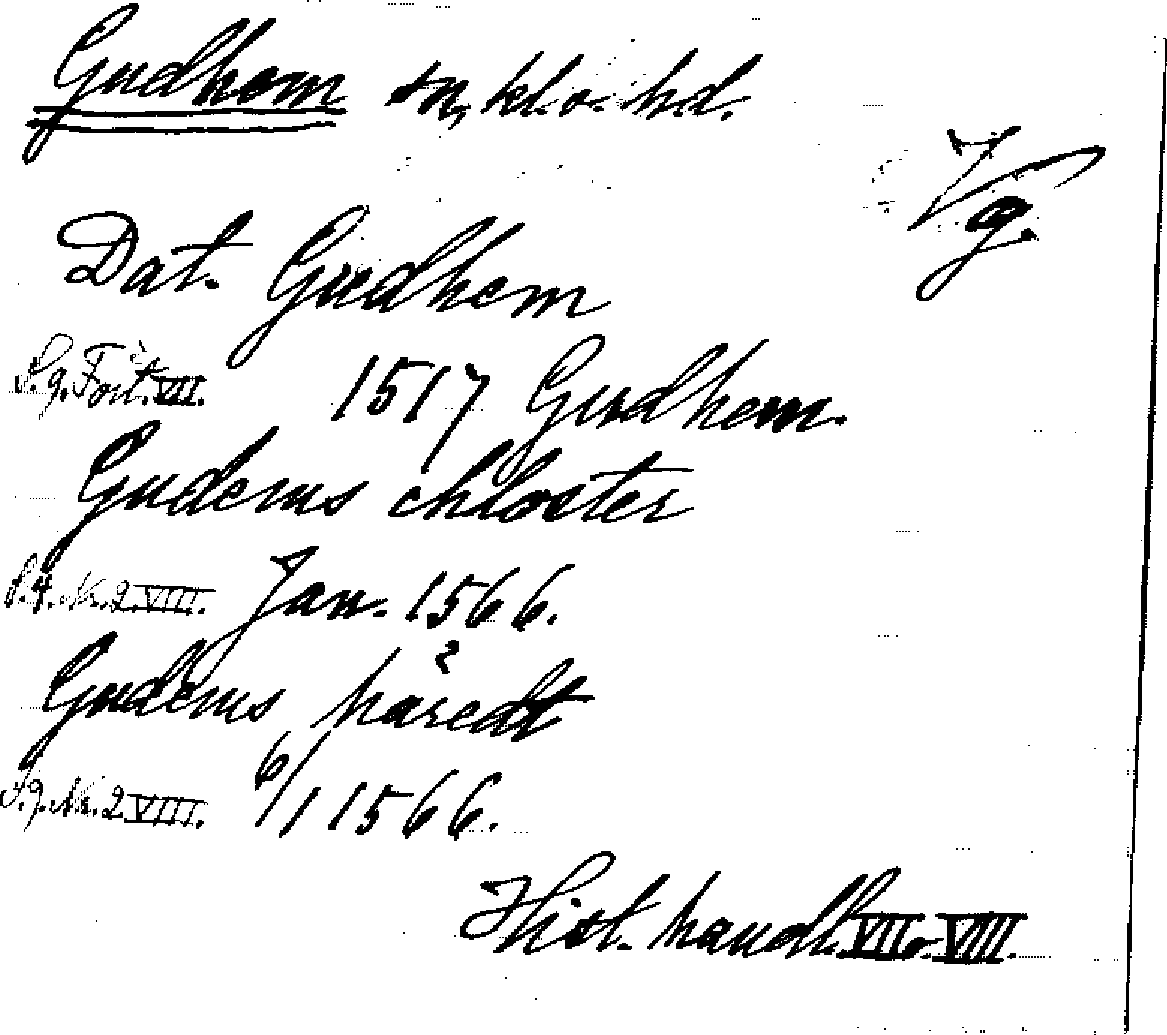 Gudhem sn, kl. o. hd.
Vg.
Dat. Gudhem
S. 9. Fört. VII. 1517 Gudhem.
Gudems chloster
S. 4. Nr. 2 VIII. Jan. 1566.
Gudems häredt
S. 9. Nr. 2 VIII. 6/1 1566.
Hist. handl. VII o. VIII.